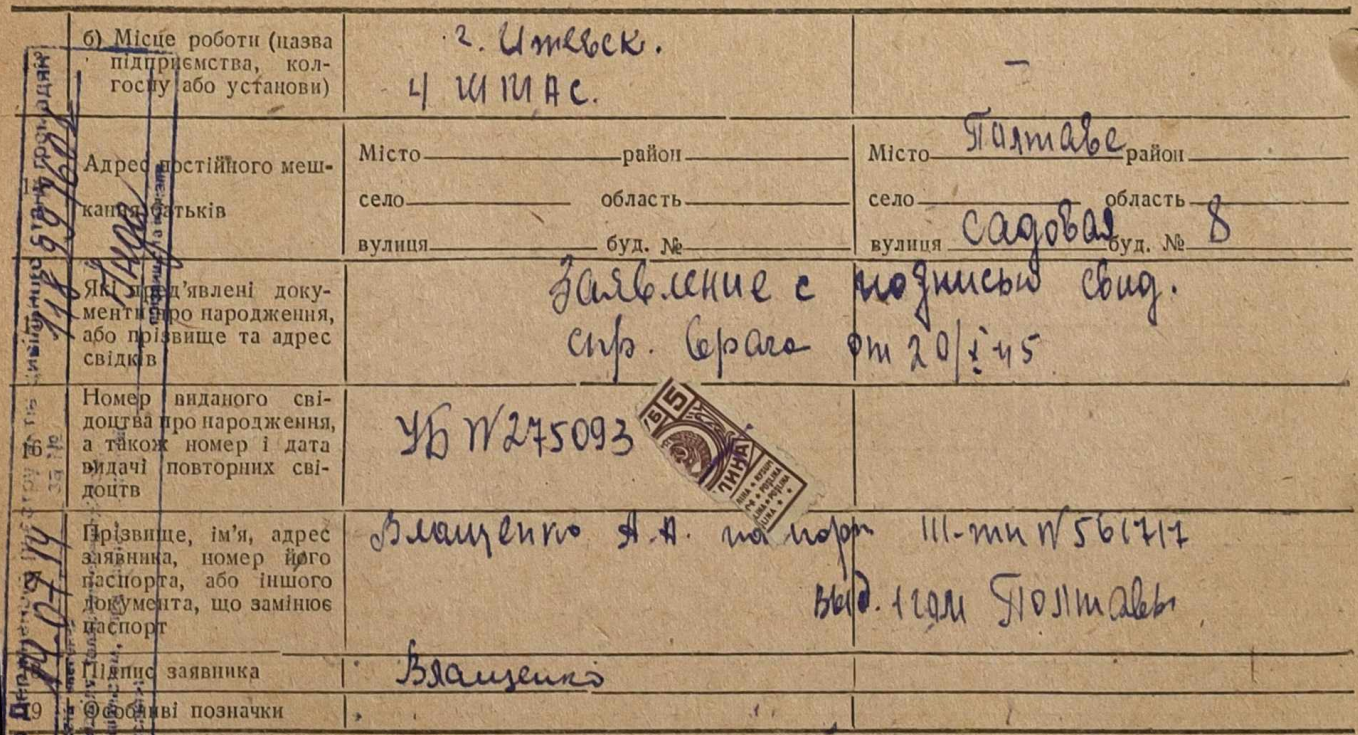 б) Місце роботи (назва
підприємства, кол-
госпу або установи)
г. Ижевск.
4 ШМАС.
—
Адрес постійного меш-
кання батьків
Місто район
село область
вулиця буд. №
Місто Полтаве район
село область
вулиця садовая буд. № 8
Які пред'явлені доку-
менти про народження,
або прізвище та адрес
свідків
Заявление с подписью свид.
спр. врача от 20/X 45
16
Номер виданого сві-
доцтва про народження,
а також номер і дата
видачі повторних сві-
доцтв
УБ №275093
5
Прізвище, ім'я, адрес
заявника, номер його
паспорта, або іншого
документа, що замінює
паспорт
Влащенко А.А. паспорт III-ти №561717
выд. 1 гом Полтавы
Підпис заявника
Влащенко
19
Особливі позначки